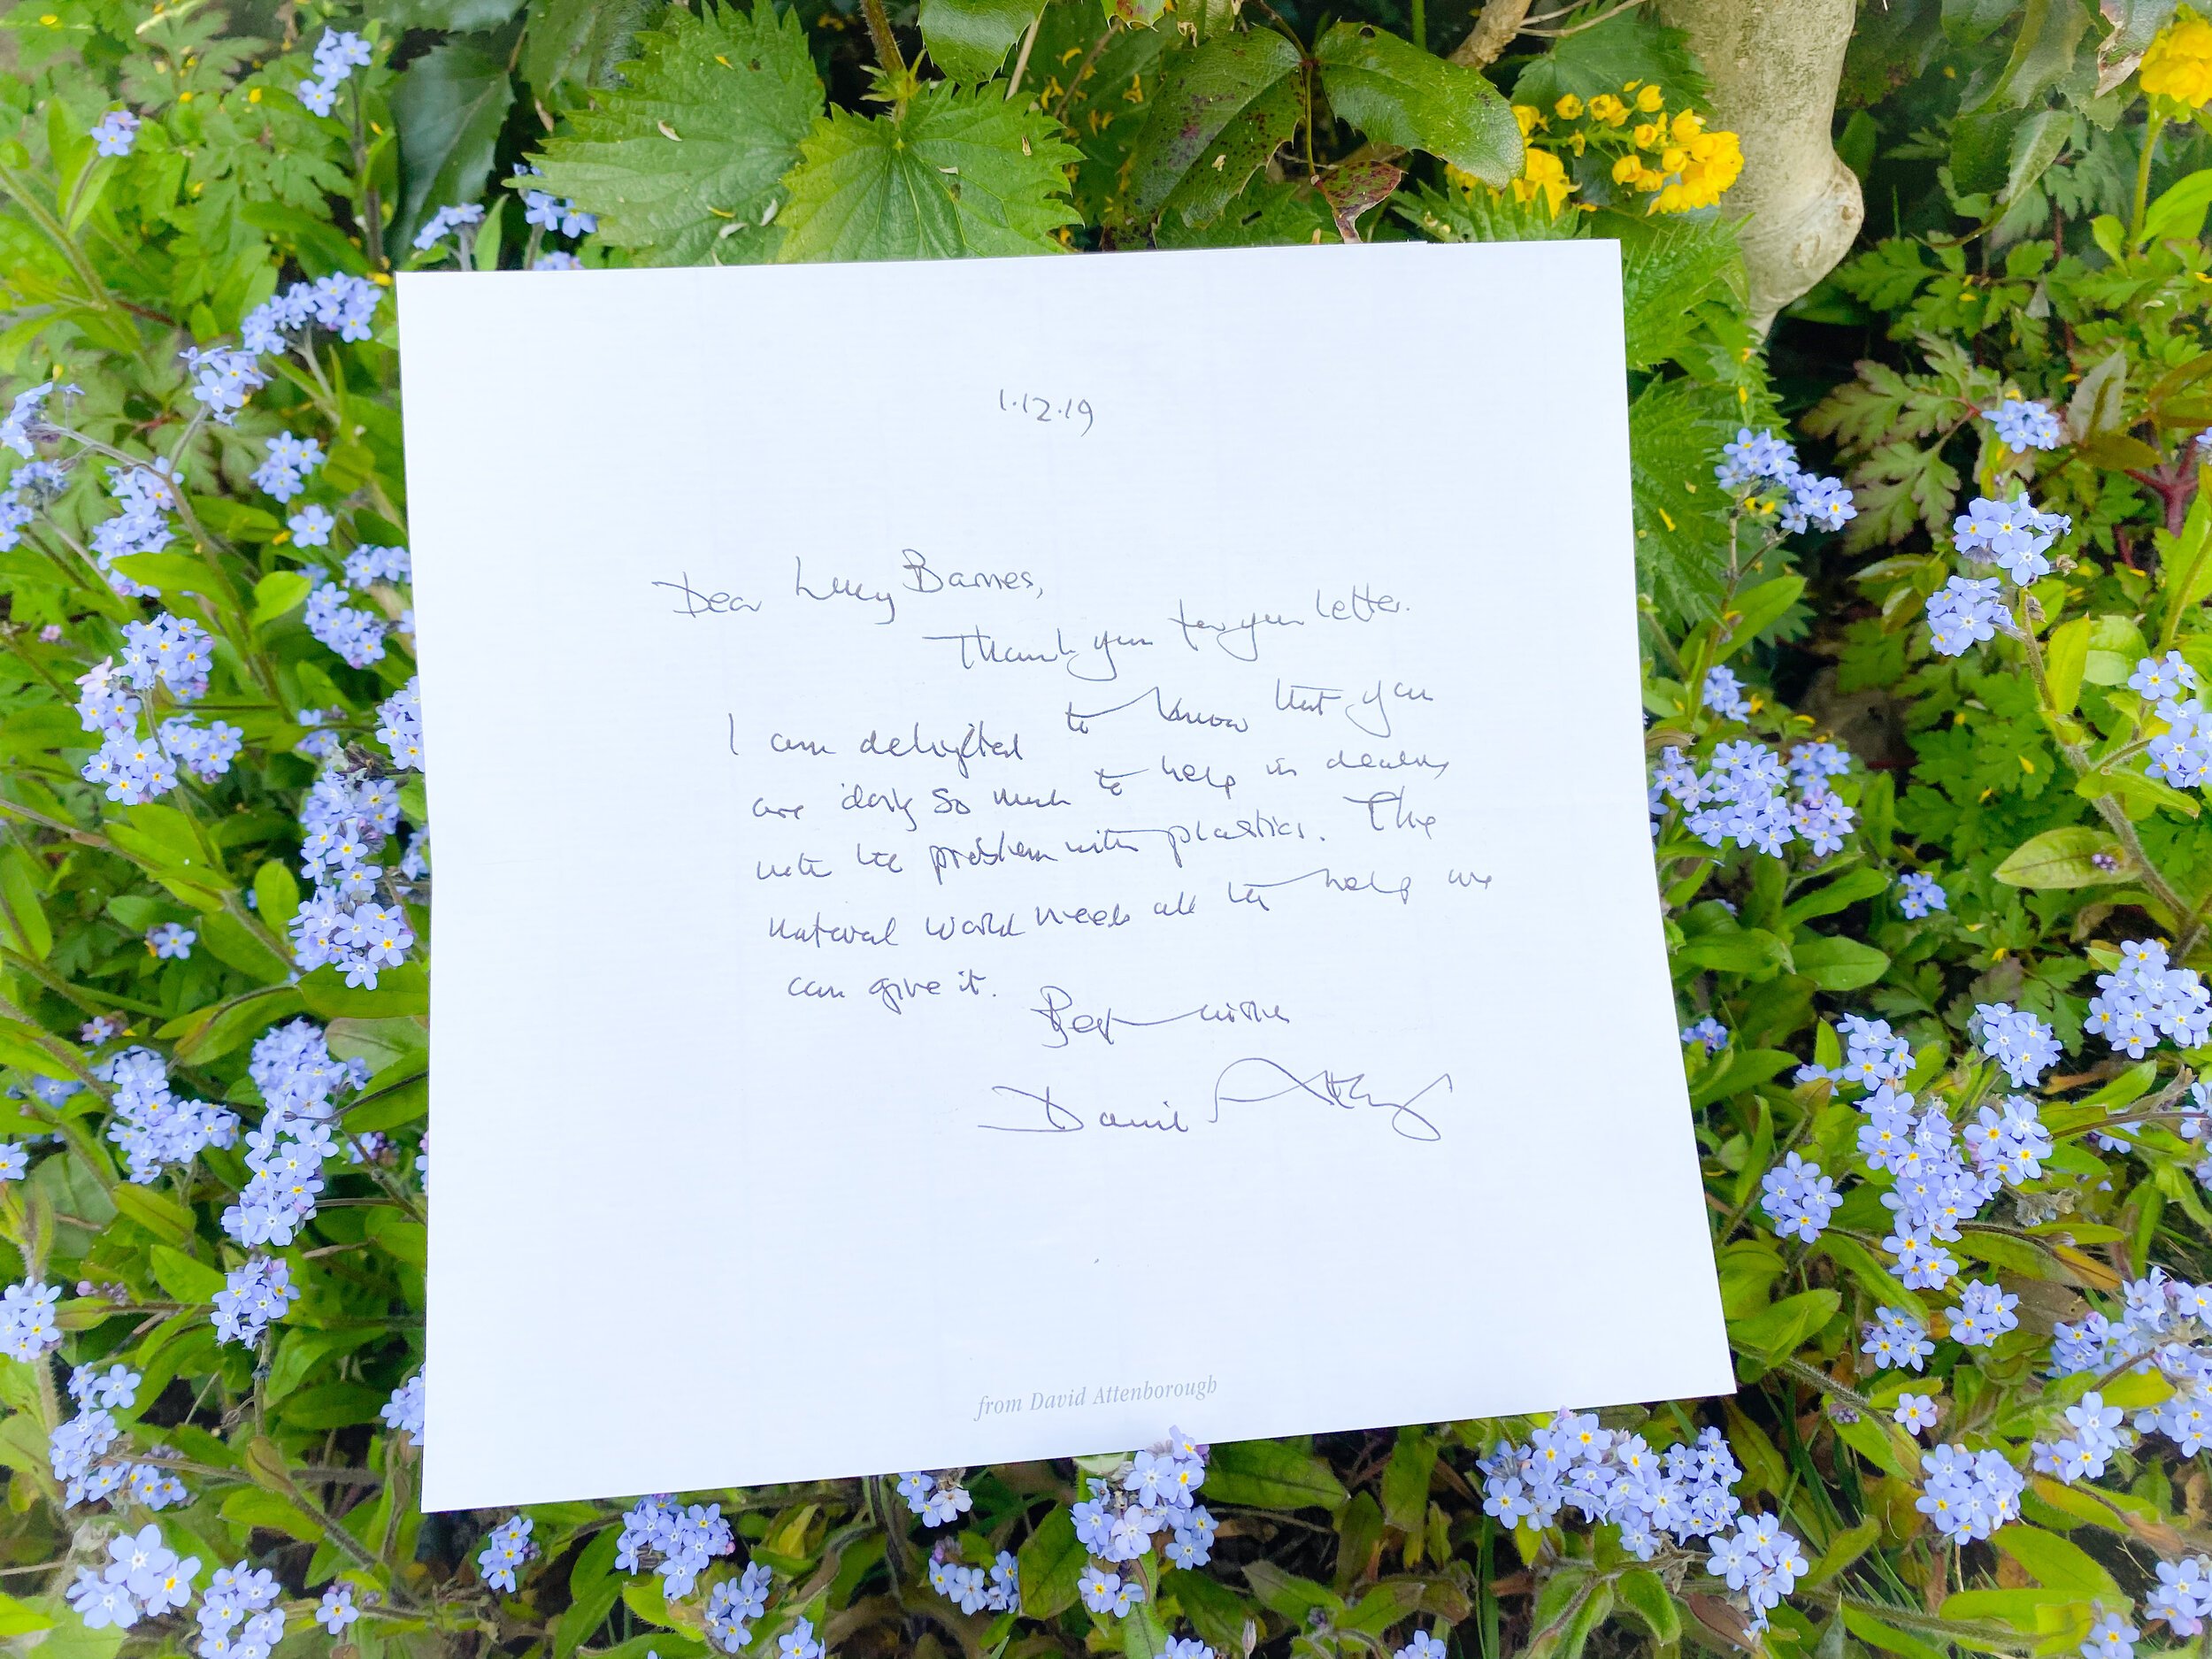 1.12.19
Dear Lucy Barnes,
Thank you for your letter.
I am delighted to know that you
are doing so much to help in dealing
with the problem with plastics. The
natural world needs all the help we
can give it.
Best wishes
David Attenborough
from David Attenborough